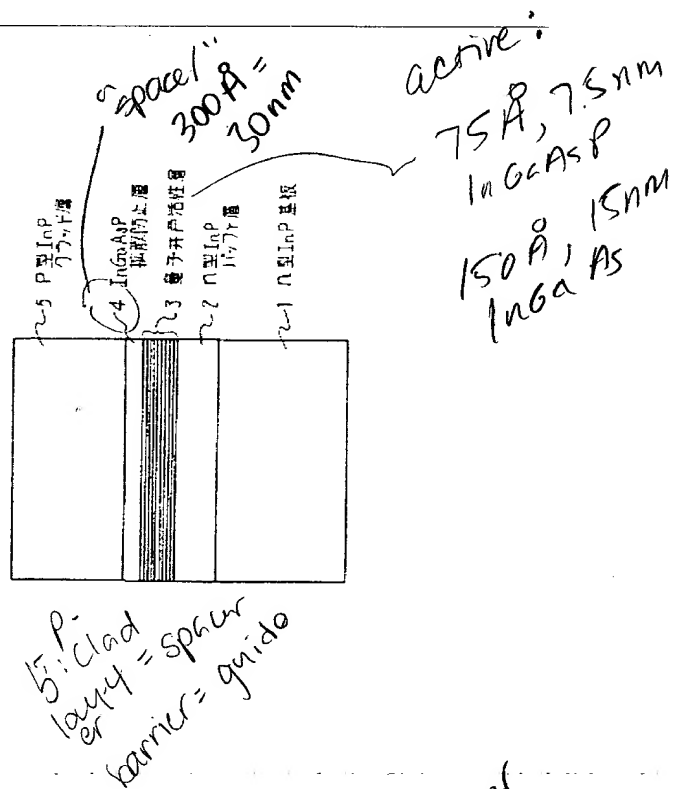 "space1"
300Å =
30nm
active:
75Å, 7.5nm
InGaAsP
150Å, 15nm
InGaAs
5 P型InP
クラッド層
4 InGaAsP
拡散防止層
3 量子井戸活性層
2 n型InP
バッファ層
1 n型InP基板
P-
5: Clad
lay 4 = spacer
er
barrier = guide